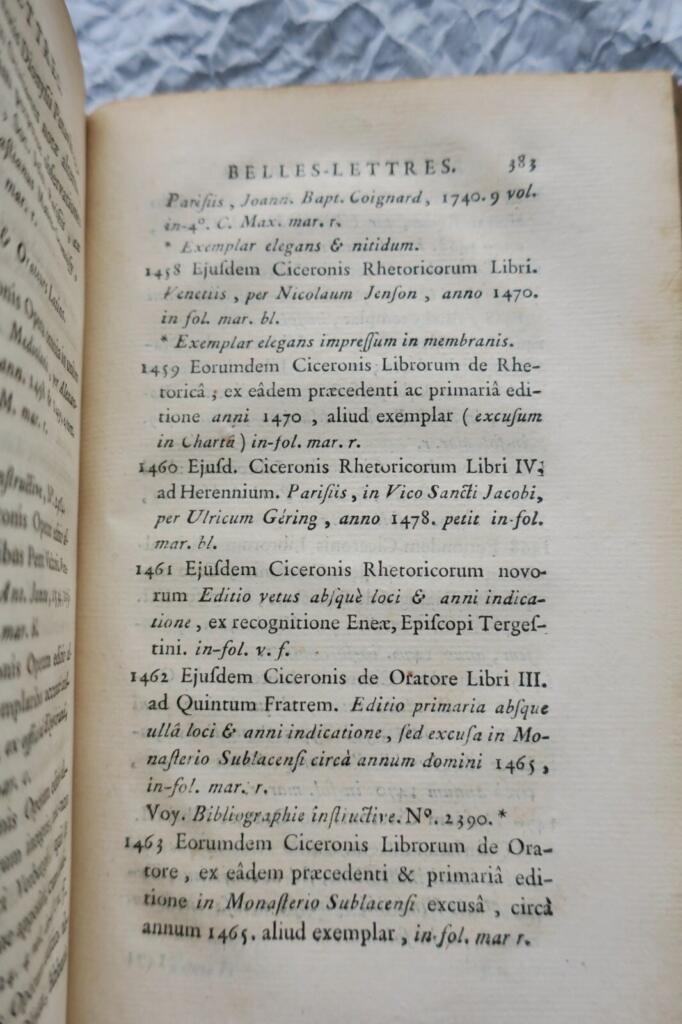 BELLES-LETTRES. 383
Parisiis, Joann. Bapt. Coignard, 1740. 9 vol.
in-4°. C. Max. mar. r.
* Exemplar elegans & nitidum.
1458 Ejuſdem Ciceronis Rhetoricorum Libri.
Venetiis, per Nicolaum Jenſon, anno 1470.
in fol. mar. bl.
* Exemplar elegans impreſſum in membranis.
1459 Eorumdem Ciceronis Librorum de Rhe-
toricâ; ex eâdem præcedenti ac primariâ edi-
tione anni 1470, aliud exemplar (excuſum
in Chartâ) in-fol. mar. r.
1460 Ejuſd. Ciceronis Rhetoricorum Libri IV;
ad Herennium. Pariſiis, in Vico Sancti Jacobi,
per Ulricum Géring, anno 1478. petit in-fol.
mar. bl.
1461 Ejuſdem Ciceronis Rhetoricorum novo-
rum Editio vetus abſquè loci & anni indica-
tione, ex recognitione Eneæ, Epiſcopi Tergeſ-
tini. in-fol. v. f.
1462 Ejuſdem Ciceronis de Oratore Libri III.
ad Quintum Fratrem. Editio primaria abſque
ullâ loci & anni indicatione, ſed excuſa in Mo-
naſterio Sublacenſi circà annum domini 1465,
in-fol. mar. r.
Voy. Bibliographie inſtructive. N°. 2390. *
1463 Eorumdem Ciceronis Librorum de Ora-
tore, ex eâdem præcedenti & primariâ edi-
tione in Monaſterio Sublacenſi excusâ, circà
annum 1465. aliud exemplar, in-fol. mar r.